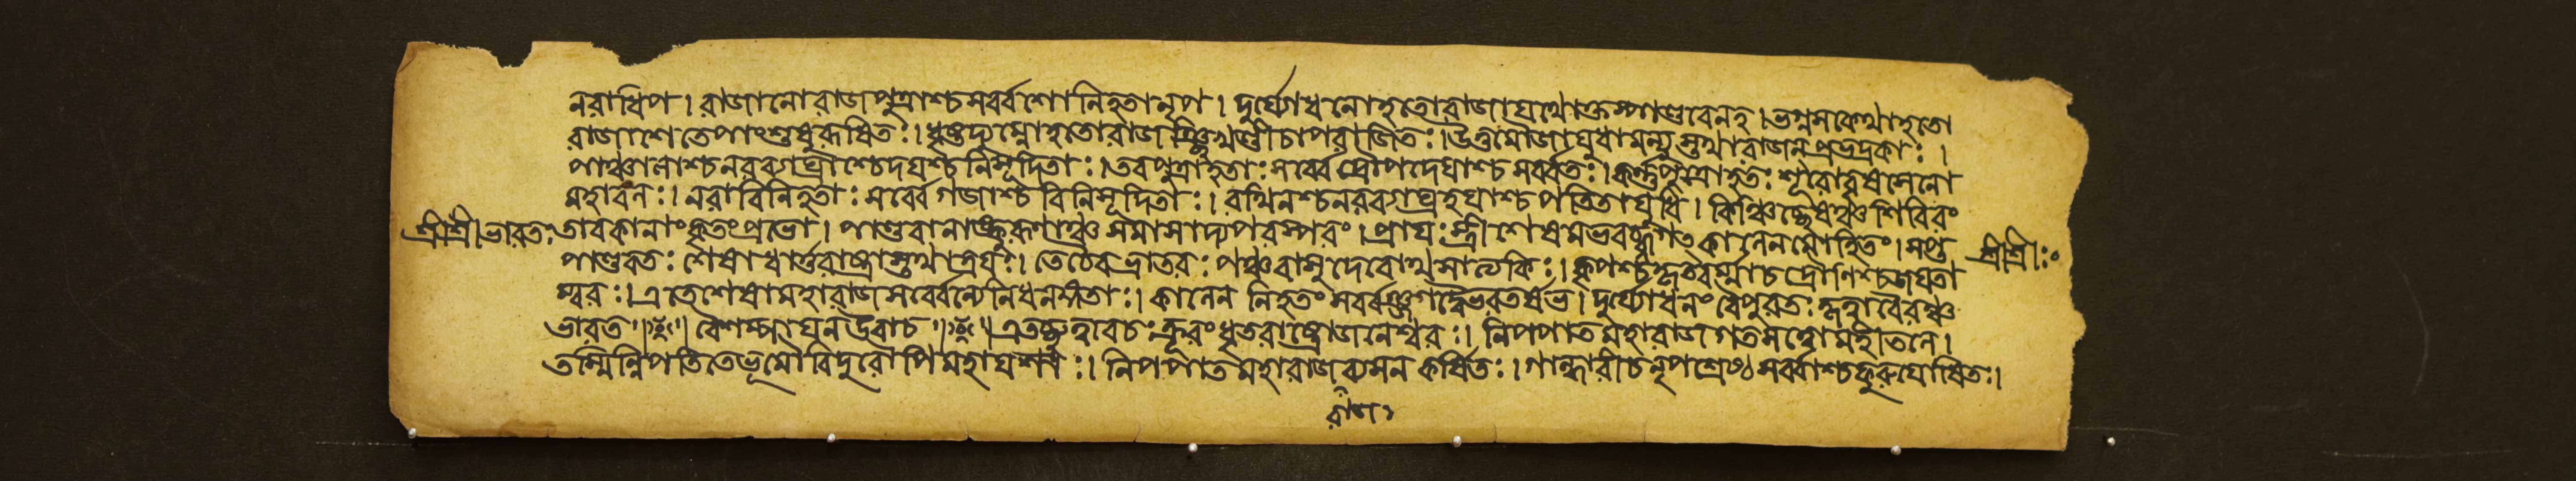 নরাধিপ । রাজানোরাজপুত্রাশ্চসর্ব্বশোনিহতানৃপ । দুর্য্যোধনোহতোরাজাযথোক্তম্পাণ্ডবেনহ । ভগ্নসক্থোহতো
রাজাশেতেপাংশুষুরূষিতঃ । ধৃষ্টদ্যুম্নোহতোরাজঞ্ছিখণ্ডীচাপরাজিতঃ । উত্তমৌজাযুধামন্যুস্তথারাজন্প্রভদ্রকাঃ ।
পাঞ্চালাশ্চনরব্যাঘ্রাশ্চেদয়শ্চনিসূদিতাঃ । তবপুত্রাহতাঃসর্ব্বেদ্রৌপদেয়াশ্চসর্ব্বতঃ । কর্ণপুত্রোহতঃশূরোবৃষসেনো
মহাবলঃ । নরাবিনিহতাঃসর্ব্বেগজাশ্চবিনিসূদিতাঃ । রথিনশ্চনরব্যাঘ্রহয়াশ্চপতিতাযুধি । কিঞ্চিচ্ছেষঞ্চশিবিরং
শ্রীশ্রী।ভারতঃ তাবকানাংকৃতংপ্রভো । পাণ্ডবানাঙ্কুরূণাঞ্চসমাসাদ্যপরস্পরং । প্রায়ঃস্ত্রীশেষমভবজ্জগৎকালেনমোহিতং । সপ্ত শ্রীশ্রীঃ
পাণ্ডবতঃশেষাধার্ত্তরাষ্ট্রাস্তথাত্রয়ঃ । তেচৈবভ্রাতরঃপঞ্চবাসুদেবোথসাত্যকিঃ । কৃপশ্চকৃতবর্ম্মাচদ্রৌণিশ্চজয়তা
ম্বরঃ । এতেশেষামহারাজসর্ব্বেন্যেনিধনঙ্গতাঃ । কালেন নিহতংসর্ব্বঞ্জগদ্বৈভরতর্ষভ । দুর্য্যোধনংবৈপুরতঃকৃত্বাবৈরঞ্চ
ভারত ॥ বৈশম্পায়ন উবাচ ॥ এতচ্ছ্রুত্বাবচঃক্রূরংধৃতরাষ্ট্রোজনেশ্বরঃ । নিপপাতমহারাজগতসত্ত্বোমহীতলে ।
তস্মিন্নিপতিতেভূমৌবিদুরোপিমহাযশাঃ । নিপপাতমহারাজব্যসনকর্ষিতঃ । গান্ধারীচনৃপশ্রেষ্ঠসর্ব্বাশ্চকুরুযোষিতঃ ।